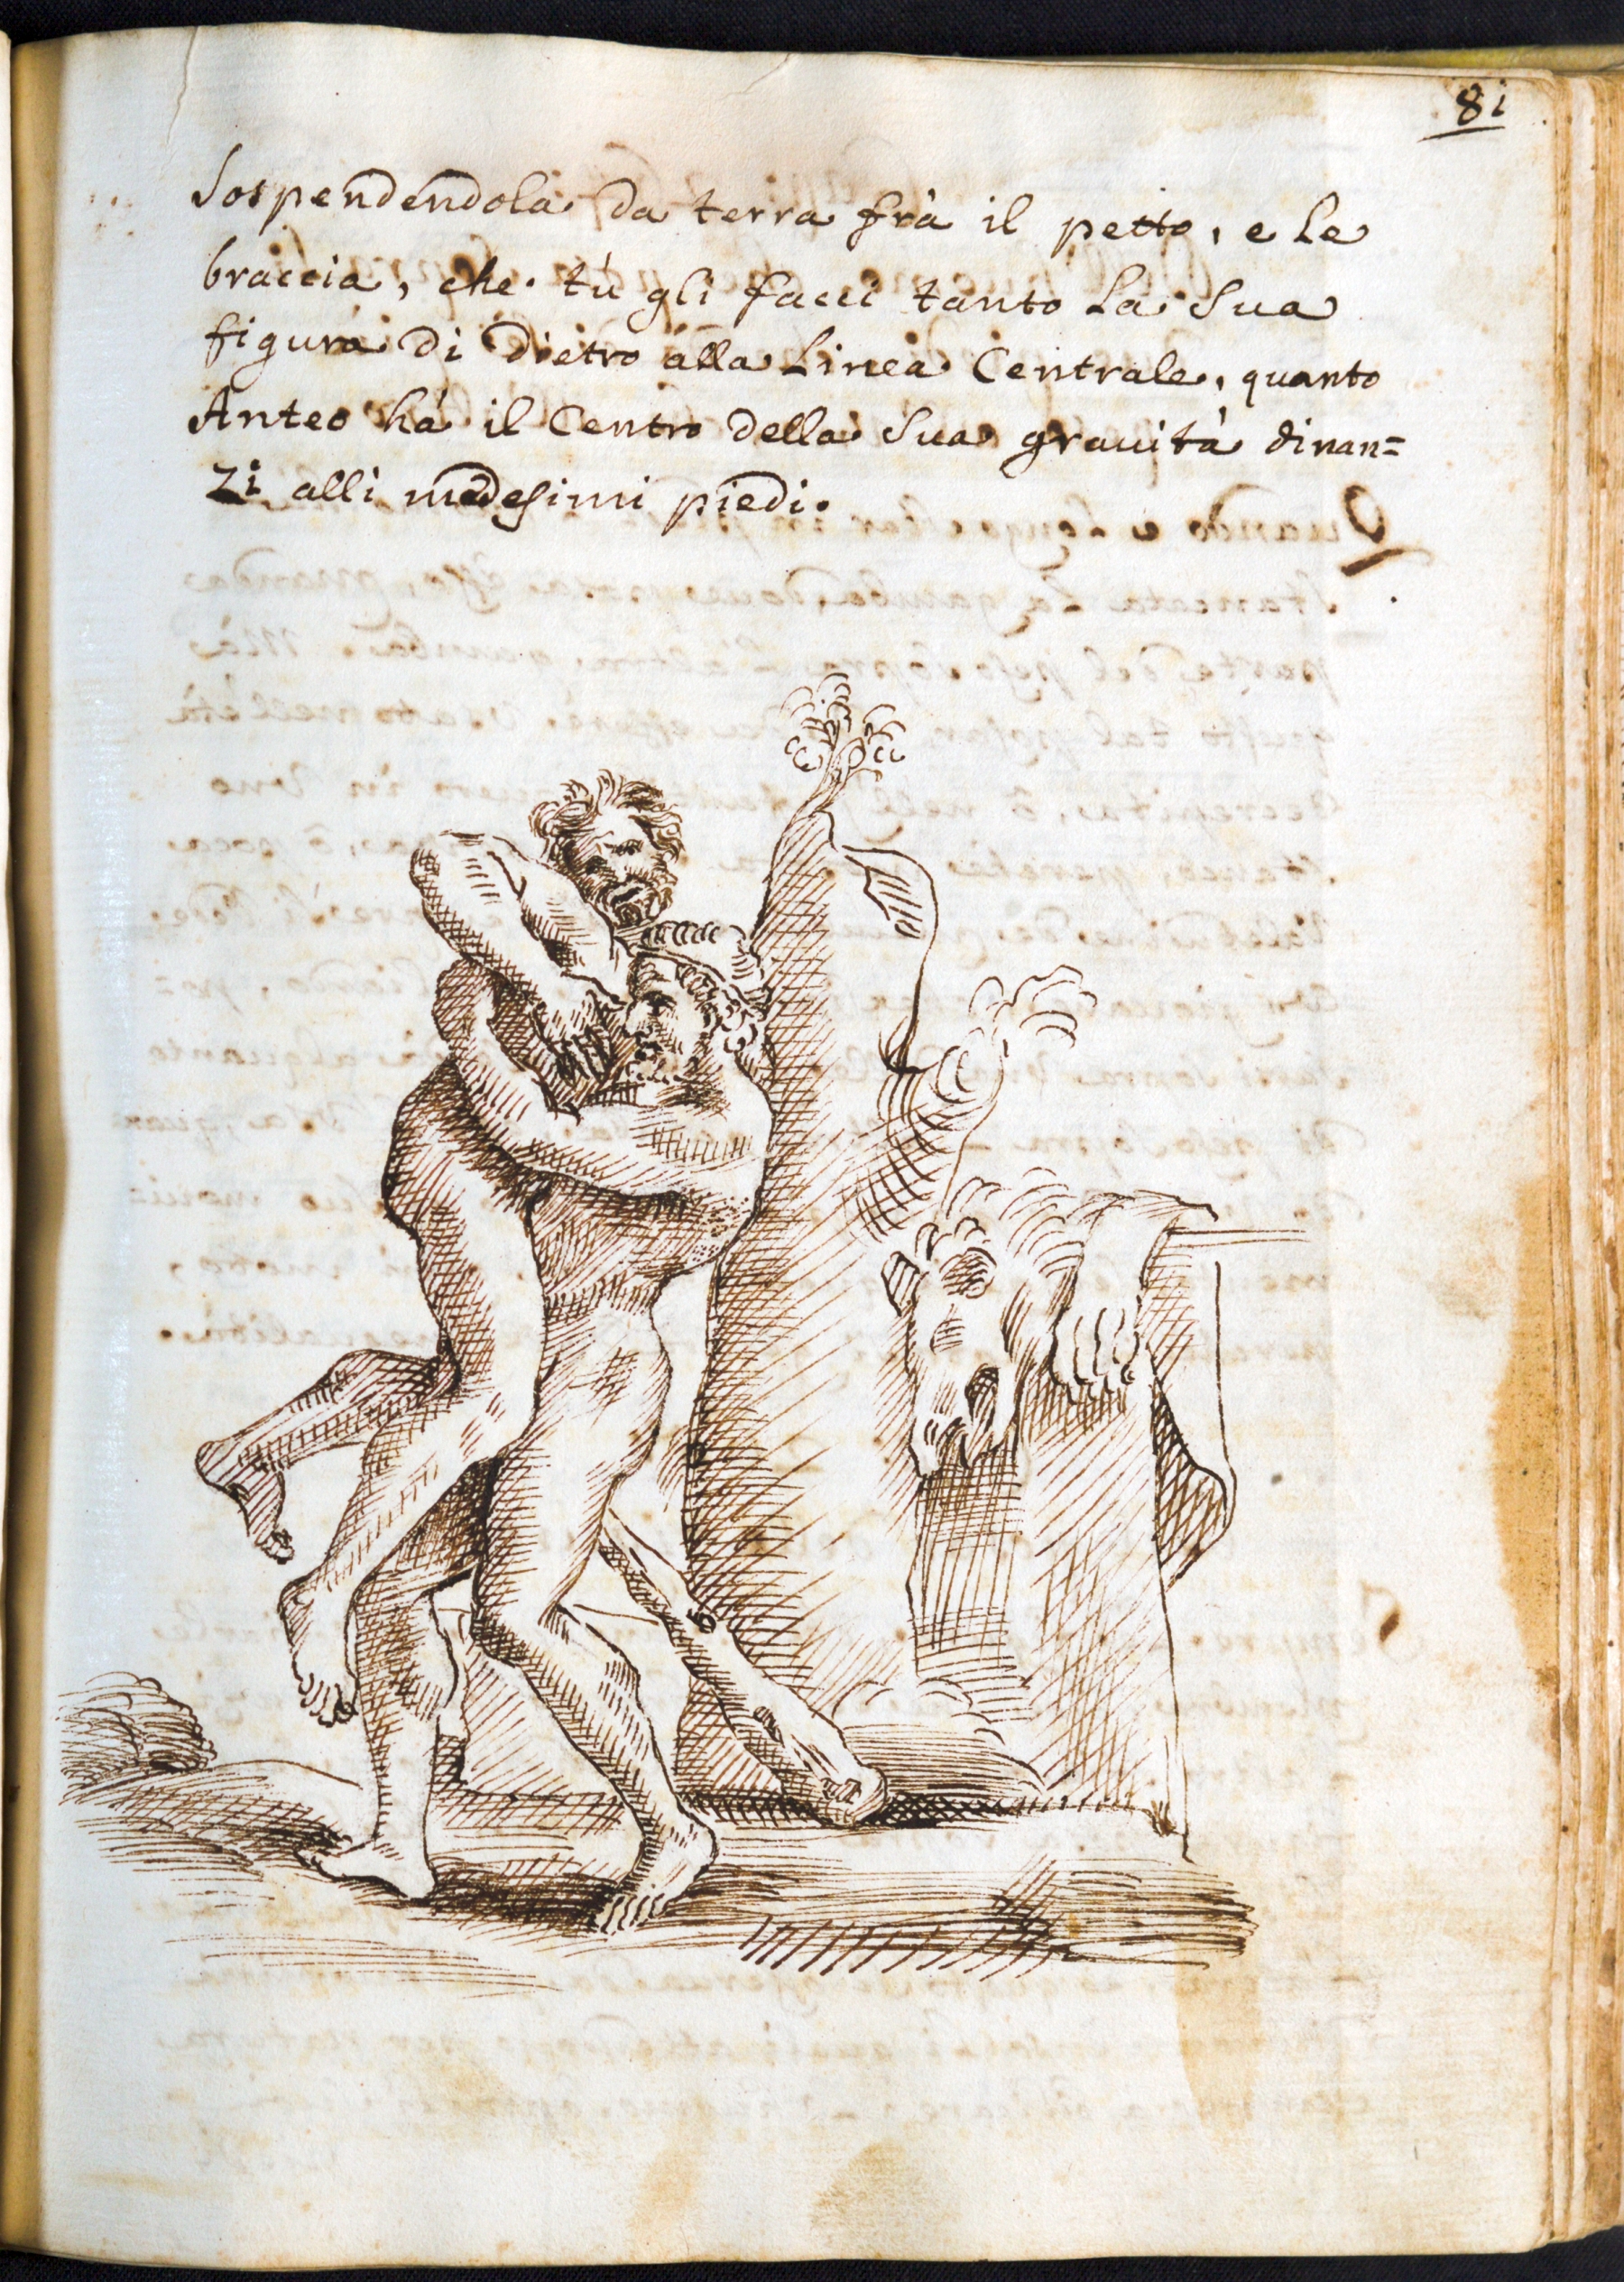 81
Sospendendola da terra frà il petto, e le
braccia, che tù gli facci tanto la Sua
figura di dietro alla Linea Centrale, quanto
Anteo hà il Centro della Sua grauità dinan=
zi alli medesimi piedi.